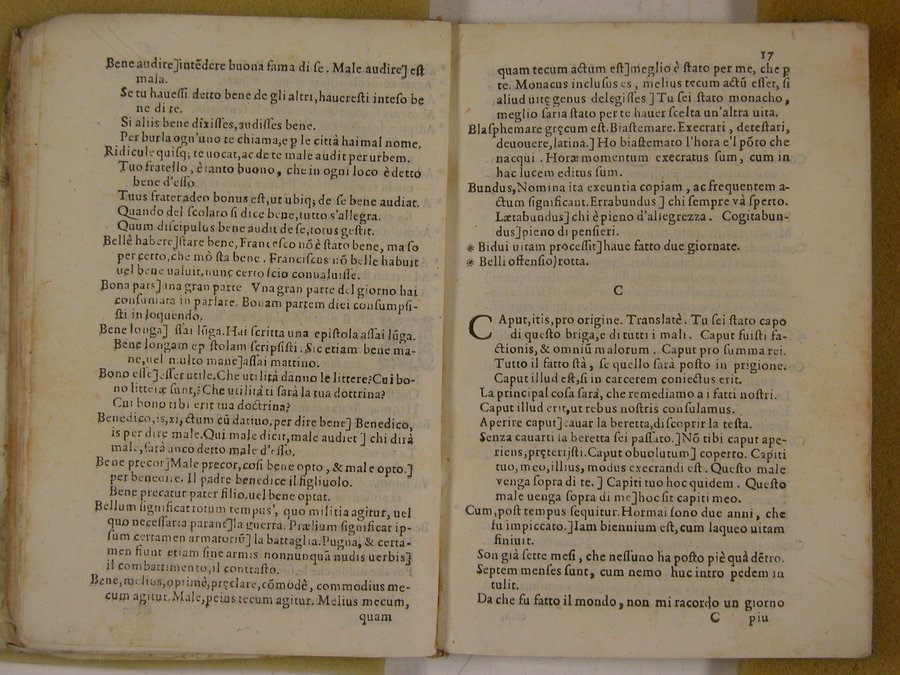 Bene audire]intēdere buona fama di se. Male audire] est
mala.
Se tu hauessi detto bene de gli altri, haueresti inteso be
ne di te.
Si aliis bene dixisses, audisses bene.
Per burla ogn'uno te chiama, e p le città hai mal nome,
Ridicule quisq; te uocat, ac de te male audit per urbem.
Tuo fratello, è tanto buono, che in ogni loco è detto
bene d'esso
Tuus frater adeo bonus est, ut ubiq; de se bene audiat.
Quando del scolaro si dice bene, tutto s'allegra.
Quum discipulus bene audit de se, totus gestit.
Bellè habere]stare bene, Francesco nō è stato bene, ma so
per certo, che mò sta bene. Franciscus nō belle habuit
uel bene ualuit, nunc certo scio conualuisse.
Bona pars]una gran parte Vna gran parte del giorno hai
consumata in parlare. Bonam partem diei consumpsi-
sti in loquendo.
Bene longa] ssai lūga. Hai scritta una epistola assai lūga.
Bene longam epistolam scripsisti. Sic etiam bene ma-
ne, uel multo mane]assai mattino.
Bono esse]esser utile. Che utilità danno le littere? Cui bo-
no litteræ sunt,? Che utilità ti sarà la tua dottrina?
Cui bono tibi erit tua doctrina?
Benedico, is, xi, ctum cū datiuo, per dire bene] Benedico,
is per dire male. Qui male dicit, male audiet ] chi dirà
male, sarà anco detto male d'esso.
Bene precor]Male precor, cosi bene opto, & male opto.]
per beneone. Il padre benedice il figliuolo.
Bene precatur pater filio, uel bene optat.
Bellum significat totum tempus', quo militia agitur, uel
quo necessaria parant]la guerra. Prælium significat ip-
sum certamen armatorū] la battaglia. Pugna, & certa-
men fiunt etiam sine armis nonnunquā nudis uerbis]
il combattimento, il contrasto.
Bene, melius, optimè, præclare, cōmodè, commodius me-
cum agitur. Male, peius tecum agitur. Melius mecum,
quam
17
quam tecum actum est]meglio è stato per me, che p
te. Monacus inclusus es, melius tecum actū esset, si
aliud uitę genus delegisses ] Tu sei stato monacho,
meglio saria stato per te hauer scelta un'altra uita.
Blasphemare gręcum est. Biastemare. Execrari, detestari,
deuouere, latina.] Ho biastemato l'hora e'l pōto che
nacqui. Horæ momentum execratus sum, cum in
hac lucem editus sum.
Bundus, Nomina ita exeuntia copiam, ac frequentem a-
ctum significant. Errabundus ] chi sempre và sperto.
Lætabundus] chi è pieno d'allegrezza. Cogitabun-
dus]pieno di pensieri.
* Bidui uitam processit]haue fatto due giornate.
* Belli offensio)rotta.
C
CAput, itis, pro origine. Translatè. Tu sei stato capo
di questo briga, e di tutti i mali. Caput fuisti fa-
ctionis, & omniū malorum. Caput pro summa rei.
Tutto il fatto stà, se quello sarà posto in prigione.
Caput illud est, si in carcerem coniectus erit.
La principal cosa sarà, che remediamo a i fatti nostri.
Caput illud erit, ut rebus nostris consulamus.
Aperire caput]cauar la beretta, discoprir la testa.
Senza cauarti la beretta sei passato.]Nō tibi caput ape-
riens, pręteriisti. Caput obuolutum] coperto. Capiti
tuo, meo, illius, modus execrandi est. Questo male
venga sopra di te. ] Capiti tuo hoc quidem. Questo
male uenga sopra di me]hoc sit capiti meo.
Cum, post tempus sequitur. Hormai sono due anni, che
fu impiccato.]Iam biennium est, cum laqueo uitam
finiuit.
Son già sette mesi, che nessuno ha posto piè quà dētro.
Septem menses sunt, cum nemo huc intro pedem in
tulit.
Da che fu fatto il mondo, non mi racordo un giorno
C piu